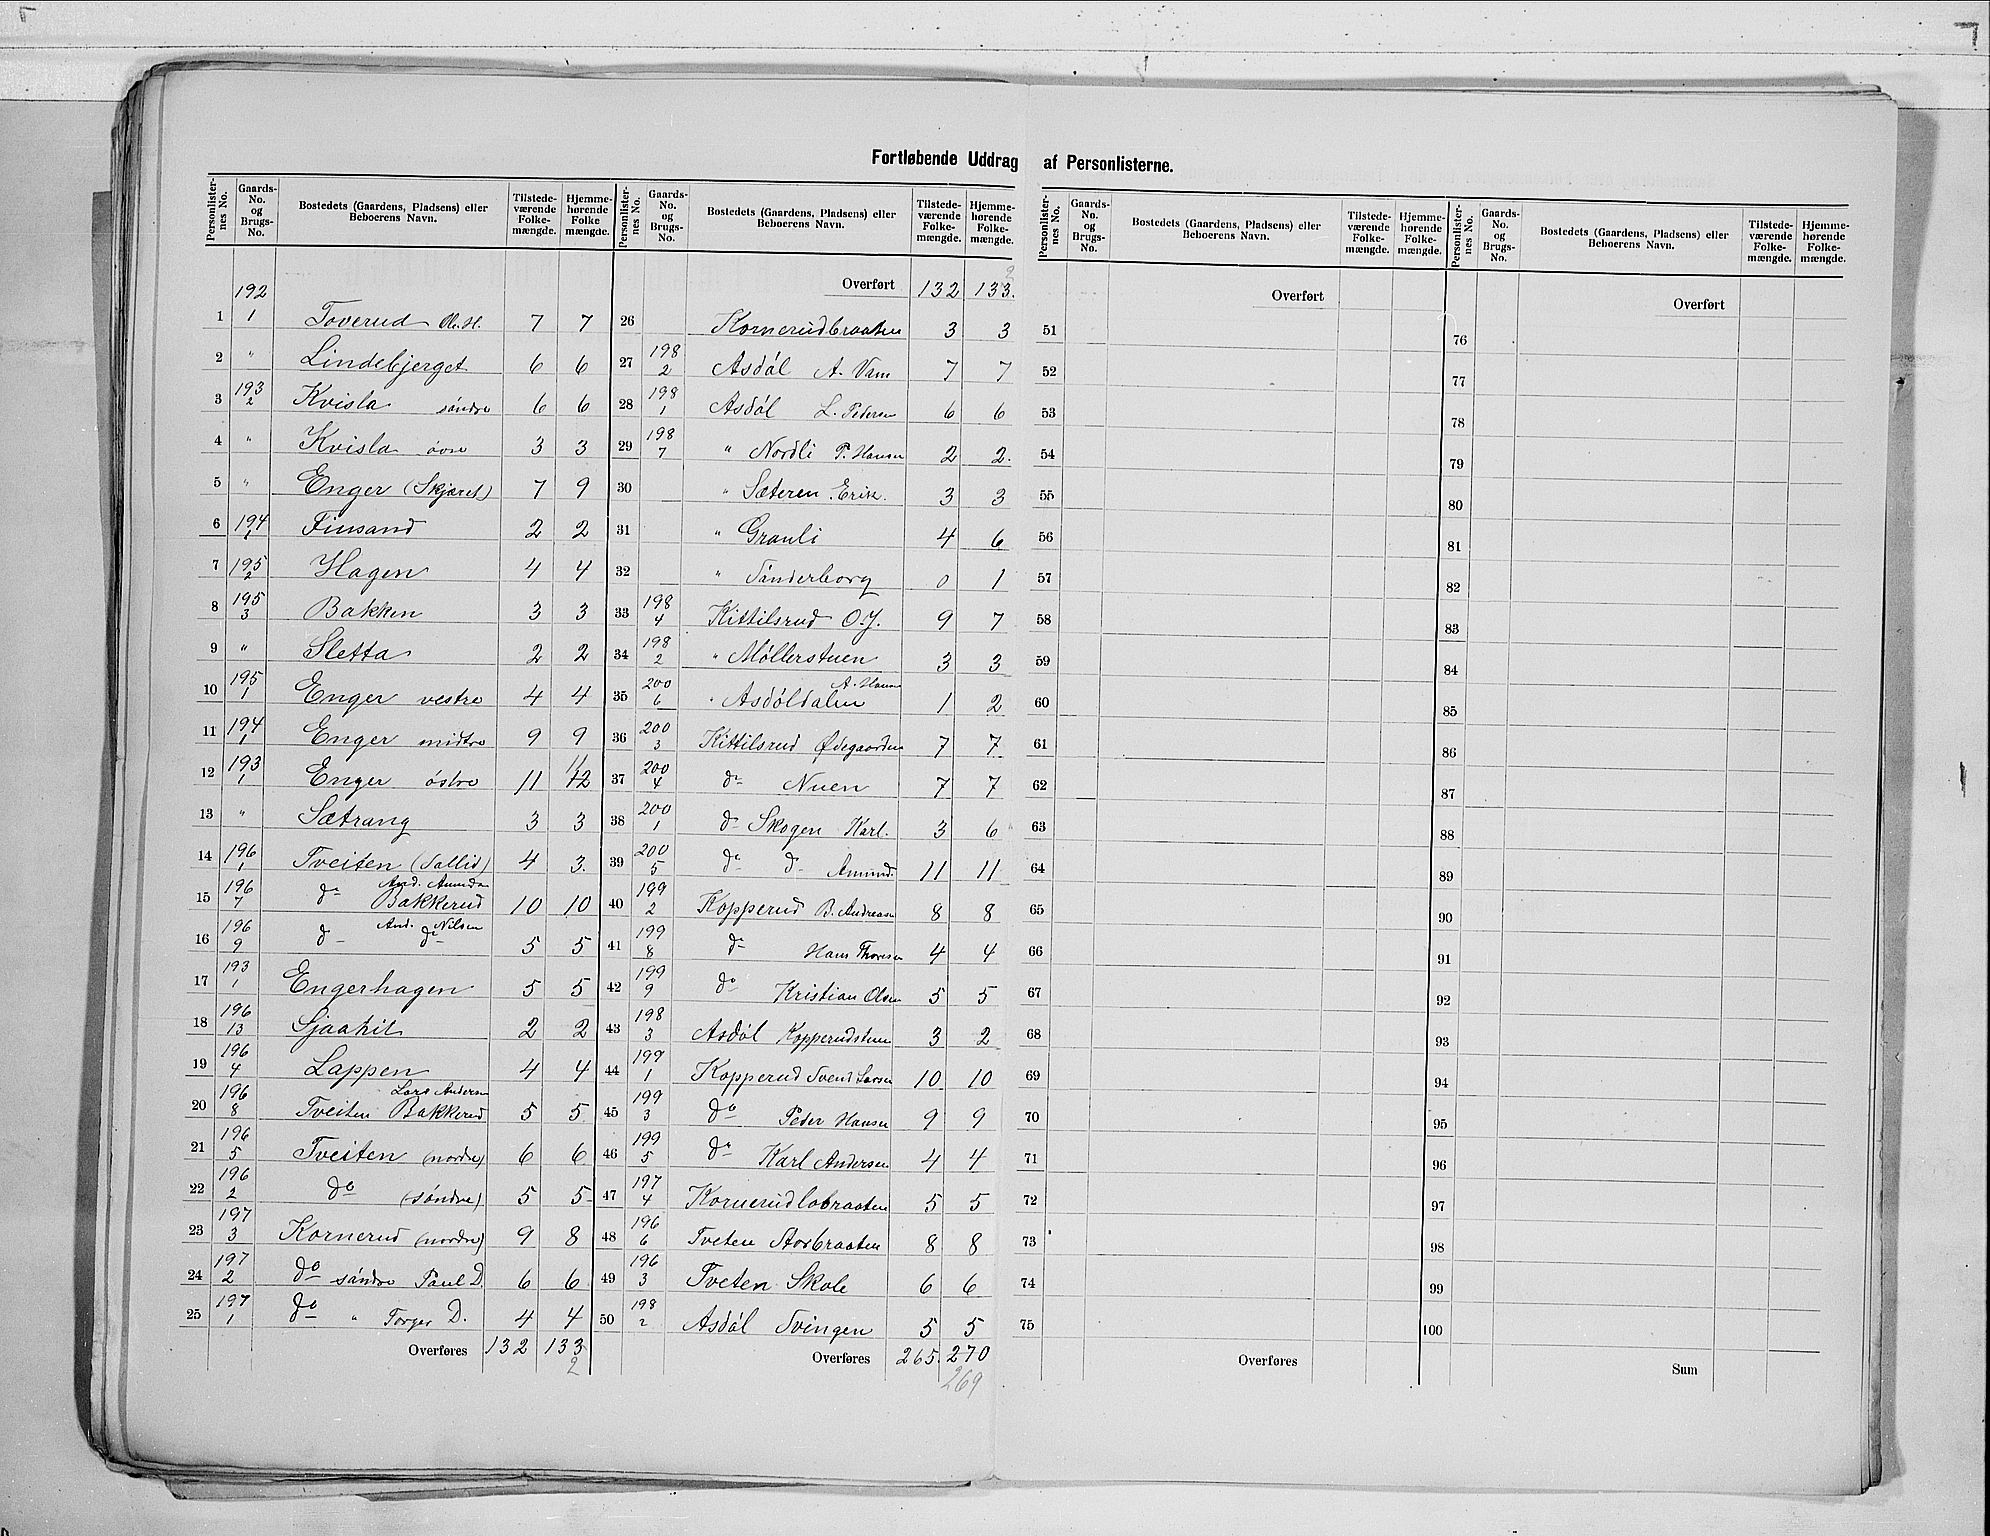 Fortløbende Uddrag af Personlisterne.
Personlisternes No. | Gaards-No. og Brugs-No. | Bostedets (Gaardens, Pladsens) eller Beboerens Navn. | Tilstedeværende Folkemængde. | Hjemmehørende Folkemængde.
1 | 192 1 | Toverud Ol. H. | 7 | 7
2 | " | Lindebjerget | 6 | 6
3 | 193 2 | Kvisla søndre | 6 | 6
4 | " | Kvisla øvre | 3 | 3
5 | " | Enger (Skjæret) | 7 | 9
6 | 194 1 | Finsand | 2 | 2
7 | 195 2 | Hagen | 4 | 4
8 | 195 3 | Bakken | 3 | 3
9 | " | Sletta | 2 | 2
10 | 195 1 | Enger vestre | 4 | 4
11 | 194 1 | Enger midtre | 9 | 9
12 | 193 1 | Enger østre | 11 | 12 11
13 | " | Sætrang | 3 | 3
14 | 196 1 | Tveiten (Sollid) | 4 | 3
15 | 196 7 | do Bakkerud And. Amunds | 10 | 10
16 | 196 9 | do do And. Nilsen | 5 | 5
17 | 193 1 | Engerhagen | 5 | 5
18 | 196 13 | Sjaahit | 2 | 2
19 | 196 4 | Lappen | 4 | 4
20 | 196 8 | Tveiten Bakkerud Lars Andersen | 5 | 5
21 | 196 5 | Tveiten (nordre) | 6 | 6
22 | 196 2 | do (søndre) | 5 | 5
23 | 197 3 | Kornerud (nordre) | 9 | 8
24 | 197 2 | do søndre Paul D. | 6 | 6
25 | 197 1 | do " Torger D. | 4 | 4
Overføres 132 | 133 2
Personlisternes No. | Gaards-No. og Brugs-No. | Bostedets (Gaardens, Pladsens) eller Beboerens Navn. | Tilstedeværende Folkemængde. | Hjemmehørende Folkemængde.
Overført 132 | 133. 2
26 | Kornerudbraaten | 3 | 3
27 | 198 2 | Asdøl A. Vam | 7 | 7
28 | 198 1 | Asdøl L. Pedersen | 6 | 6
29 | 198 7 | " Nordli P. Hansen | 2 | 2.
30 | " Sæteren Erik. | 3 | 3
31 | " Granli | 4 | 6
32 | " Sønderborg | 0 | 1
33 | 198 4 | Kittilsrud O. J. | 9 | 7
34 | 198 2 | " Møllerstuen | 3 | 3
35 | 200 6 | " Asdøldalen A. Hansen | 1 | 2
36 | 200 3 | Kittilsrud Ødegaarden | 7 | 7
37 | 200 4 | do Nuen | 7 | 7
38 | 200 1 | do Skogen Karl. | 3 | 6
39 | 200 5 | do do Amund. | 11 | 11
40 | 199 2 | Kopperud B. Andreasen | 8 | 8
41 | 199 8 | do Hans Thoresen | 4 | 4
42 | 199 9 | do Kristian Olsen | 5 | 5
43 | 198 3 | Asdøl Kopperudstuen | 3 | 2
44 | 199 1 | Kopperud Svend Larsen | 10 | 10
45 | 199 3 | do Peder Hansen | 9 | 9
46 | 199 5 | do Karl Andersen | 4 | 4
47 | 197 4 | Kornerudlobraaten | 5 | 5
48 | 196 6 | Tveten Aosbraaten | 8 | 8
49 | 196 3 | Tveten Skole | 6 | 6
50 | 198 2 | Asdøl Svingen | 5 | 5
Overføres 265. | 270 269
Personlisternes No. | Gaards-No. og Brugs-No. | Bostedets (Gaardens, Pladsens) eller Beboerens Navn. | Tilstedeværende Folkemængde. | Hjemmehørende Folkemængde.
Overført
51
52
53
54
55
56
57
58
59
60
61
62
63
64
65
66
67
68
69
70
71
72
73
74
75
Overføres
Personlisternes No. | Gaards-No. og Brugs-No. | Bostedets (Gaardens, Pladsens) eller Beboerens Navn. | Tilstedeværende Folkemængde. | Hjemmehørende Folkemængde.
Overført
76
77
78
79
80
81
82
83
84
85
86
87
88
89
90
91
92
93
94
95
96
97
98
99
100
Sum